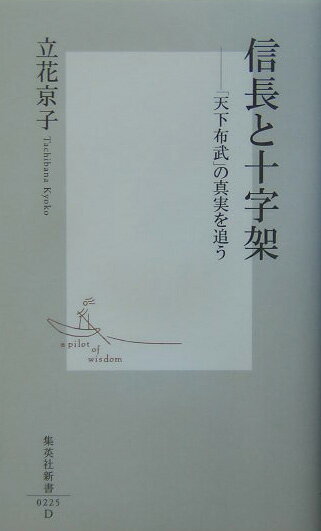 信長と十字架
──「天下布武」の真実を追う
立花京子
Tachibana Kyoko
a pilot
of
wisdom
集英社新書
0225
D